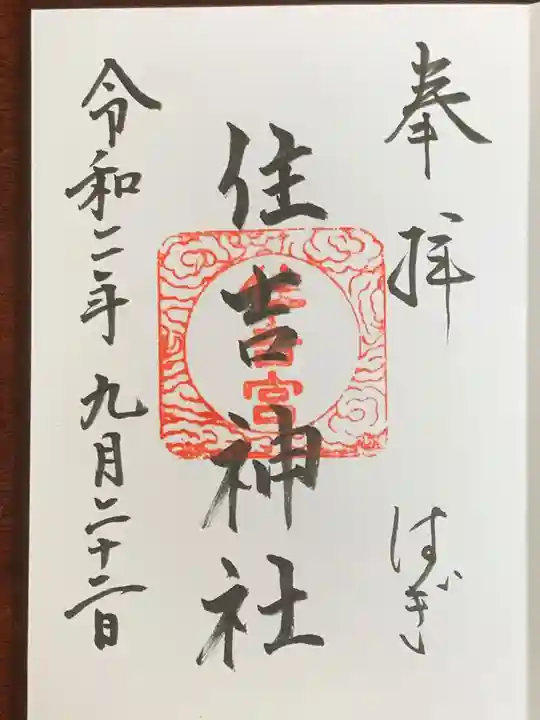 奉拝
はゞき
住吉神社
令和二年九月二十二日